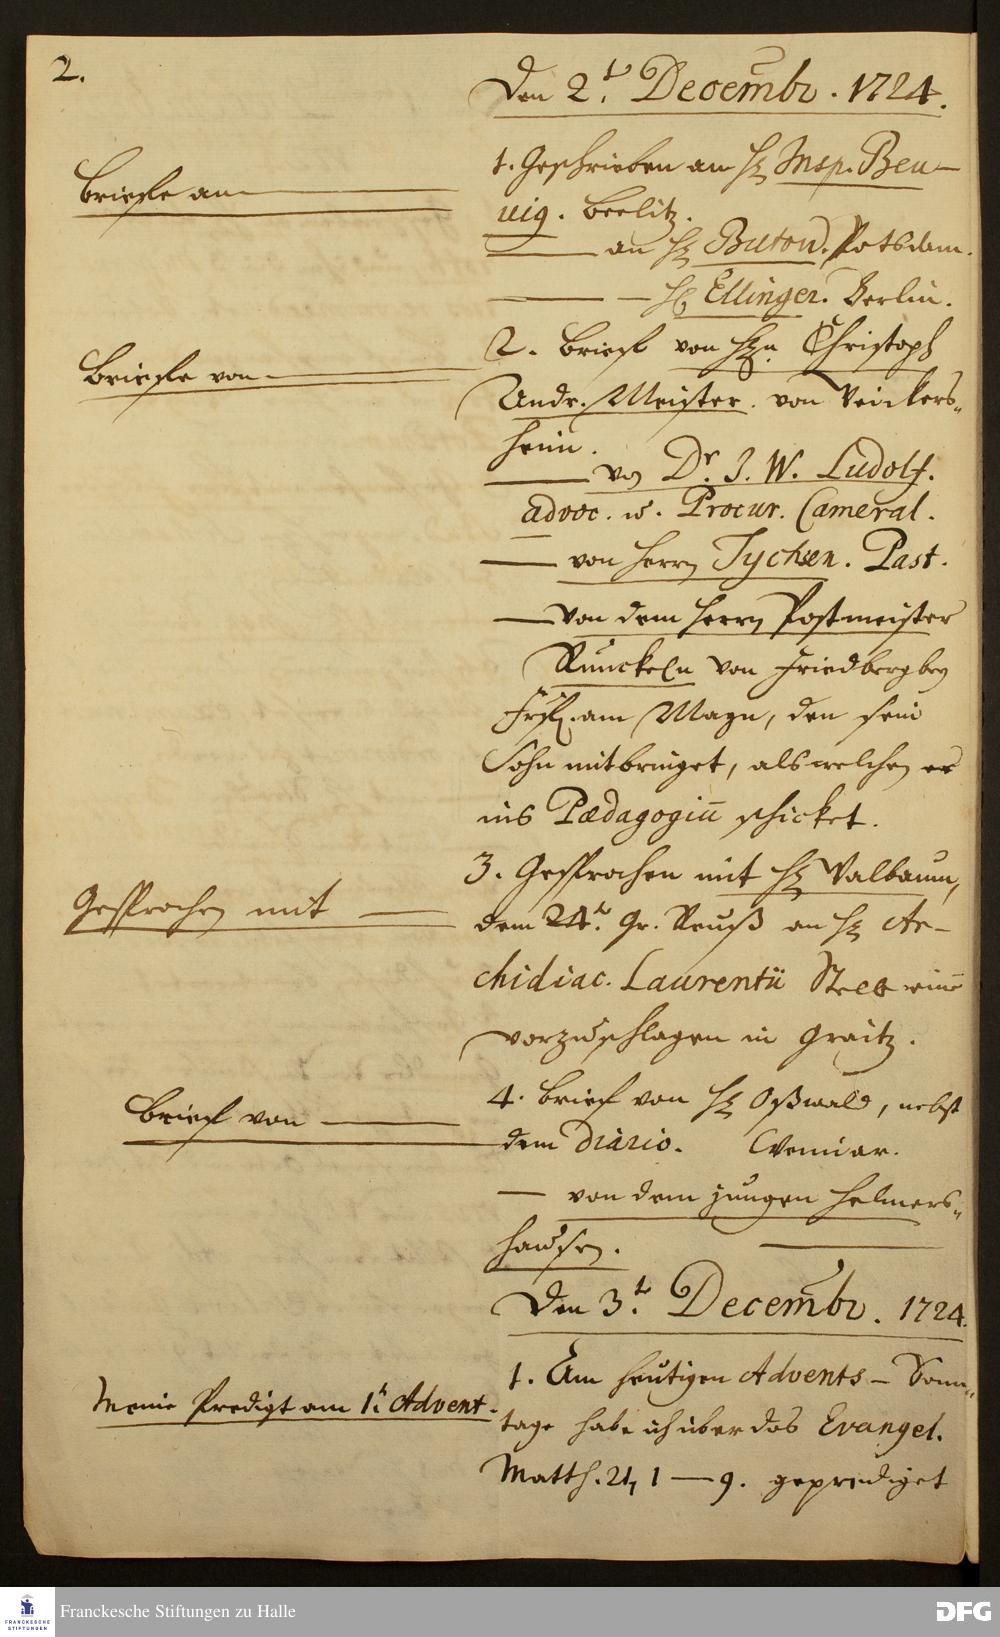 2.
Den 2.t Decembr. 1724.
Briefe an
1. Geschrieben an H. Insp. Beu-
uig. Beelitz.
an H. Buton. Potsdam.
H. Ellinger. Berlin.
Briefe von
2. Brief von H. Christoph
Andr. Meister. von Weickers-
heim.
von Dr. J. W. Ludolf.
advoc. u. Procur. Cameral.
von Herrn Tychsen. Past.
von dem Herrn Postmeister
Runckeln von Friedberg bey
Frkf. am Mayn, den sein
Sohn mitbringet, als welchen er
ins Pædagogiū schicket.
Gesprochen mit
3. Gesprochen mit H. Walbaum,
dem 24.t Gr. Reuß an H. Ar-
chidiac. Laurentii Stelle einē
vorzuschlagen in Graitz.
Brief von
4. Brief von H. Oßwald, nebst
dem diario. Weimar.
von dem jungen Helmers-
hausen.
Den 3.t Decembr. 1724.
Meine Predigt am 1.t Advent.
1. Am heutigen Advents-Sonn-
tage habe ich über das Evangel.
Matth. 21, 1 — 9. geprediget
Franckesche Stiftungen zu Halle
FRANCKESCHE
STIFTUNGEN
DFG